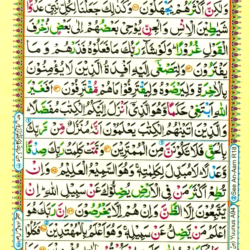 وَلٰكِنَّ اَكْثَرَهُمْ يَجْهَلُوْنَ وَكَذٰلِكَ جَعَلْنَا لِكُلِّ نَبِيٍّ عَدُوًّا
شَيٰطِيْنَ الْاِنْسِ وَالْجِنِّ يُوْحِيْ بَعْضُهُمْ اِلٰى بَعْضٍ زُخْرُفَ
الْقَوْلِ غُرُوْرًا وَلَوْ شَآءَ رَبُّكَ مَا فَعَلُوْهُ فَذَرْهُمْ وَمَا
يَفْتَرُوْنَ وَلِتَصْغٰٓى اِلَيْهِ اَفْـِٕدَةُ الَّذِيْنَ لَا يُؤْمِنُوْنَ
بِالْاٰخِرَةِ وَلِيَرْضَوْهُ وَلِيَقْتَرِفُوْا مَا هُمْ مُّقْتَرِفُوْنَ اَفَغَيْرَ
اللّٰهِ اَبْتَغِيْ حَكَمًا وَّهُوَ الَّذِيْٓ اَنْزَلَ اِلَيْكُمُ الْكِتٰبَ مُفَصَّلًا
وَالَّذِيْنَ اٰتَيْنٰهُمُ الْكِتٰبَ يَعْلَمُوْنَ اَنَّهٗ مُنَزَّلٌ مِّنْ رَّبِّكَ
بِالْحَقِّ فَلَا تَكُوْنَنَّ مِنَ الْمُمْتَرِيْنَ وَتَمَّتْ كَلِمَتُ رَبِّكَ صِدْقًا
وَّعَدْلًا لَا مُبَدِّلَ لِكَلِمٰتِهٖ وَهُوَ السَّمِيْعُ الْعَلِيْمُ وَاِنْ
تُطِعْ اَكْثَرَ مَنْ فِي الْاَرْضِ يُضِلُّوْكَ عَنْ سَبِيْلِ اللّٰهِ اِنْ
يَّتَّبِعُوْنَ اِلَّا الظَّنَّ وَاِنْ هُمْ اِلَّا يَخْرُصُوْنَ اِنَّ رَبَّكَ هُوَ
اَعْلَمُ مَنْ يَّضِلُّ عَنْ سَبِيْلِهٖ وَهُوَ اَعْلَمُ بِالْمُهْتَدِيْنَ